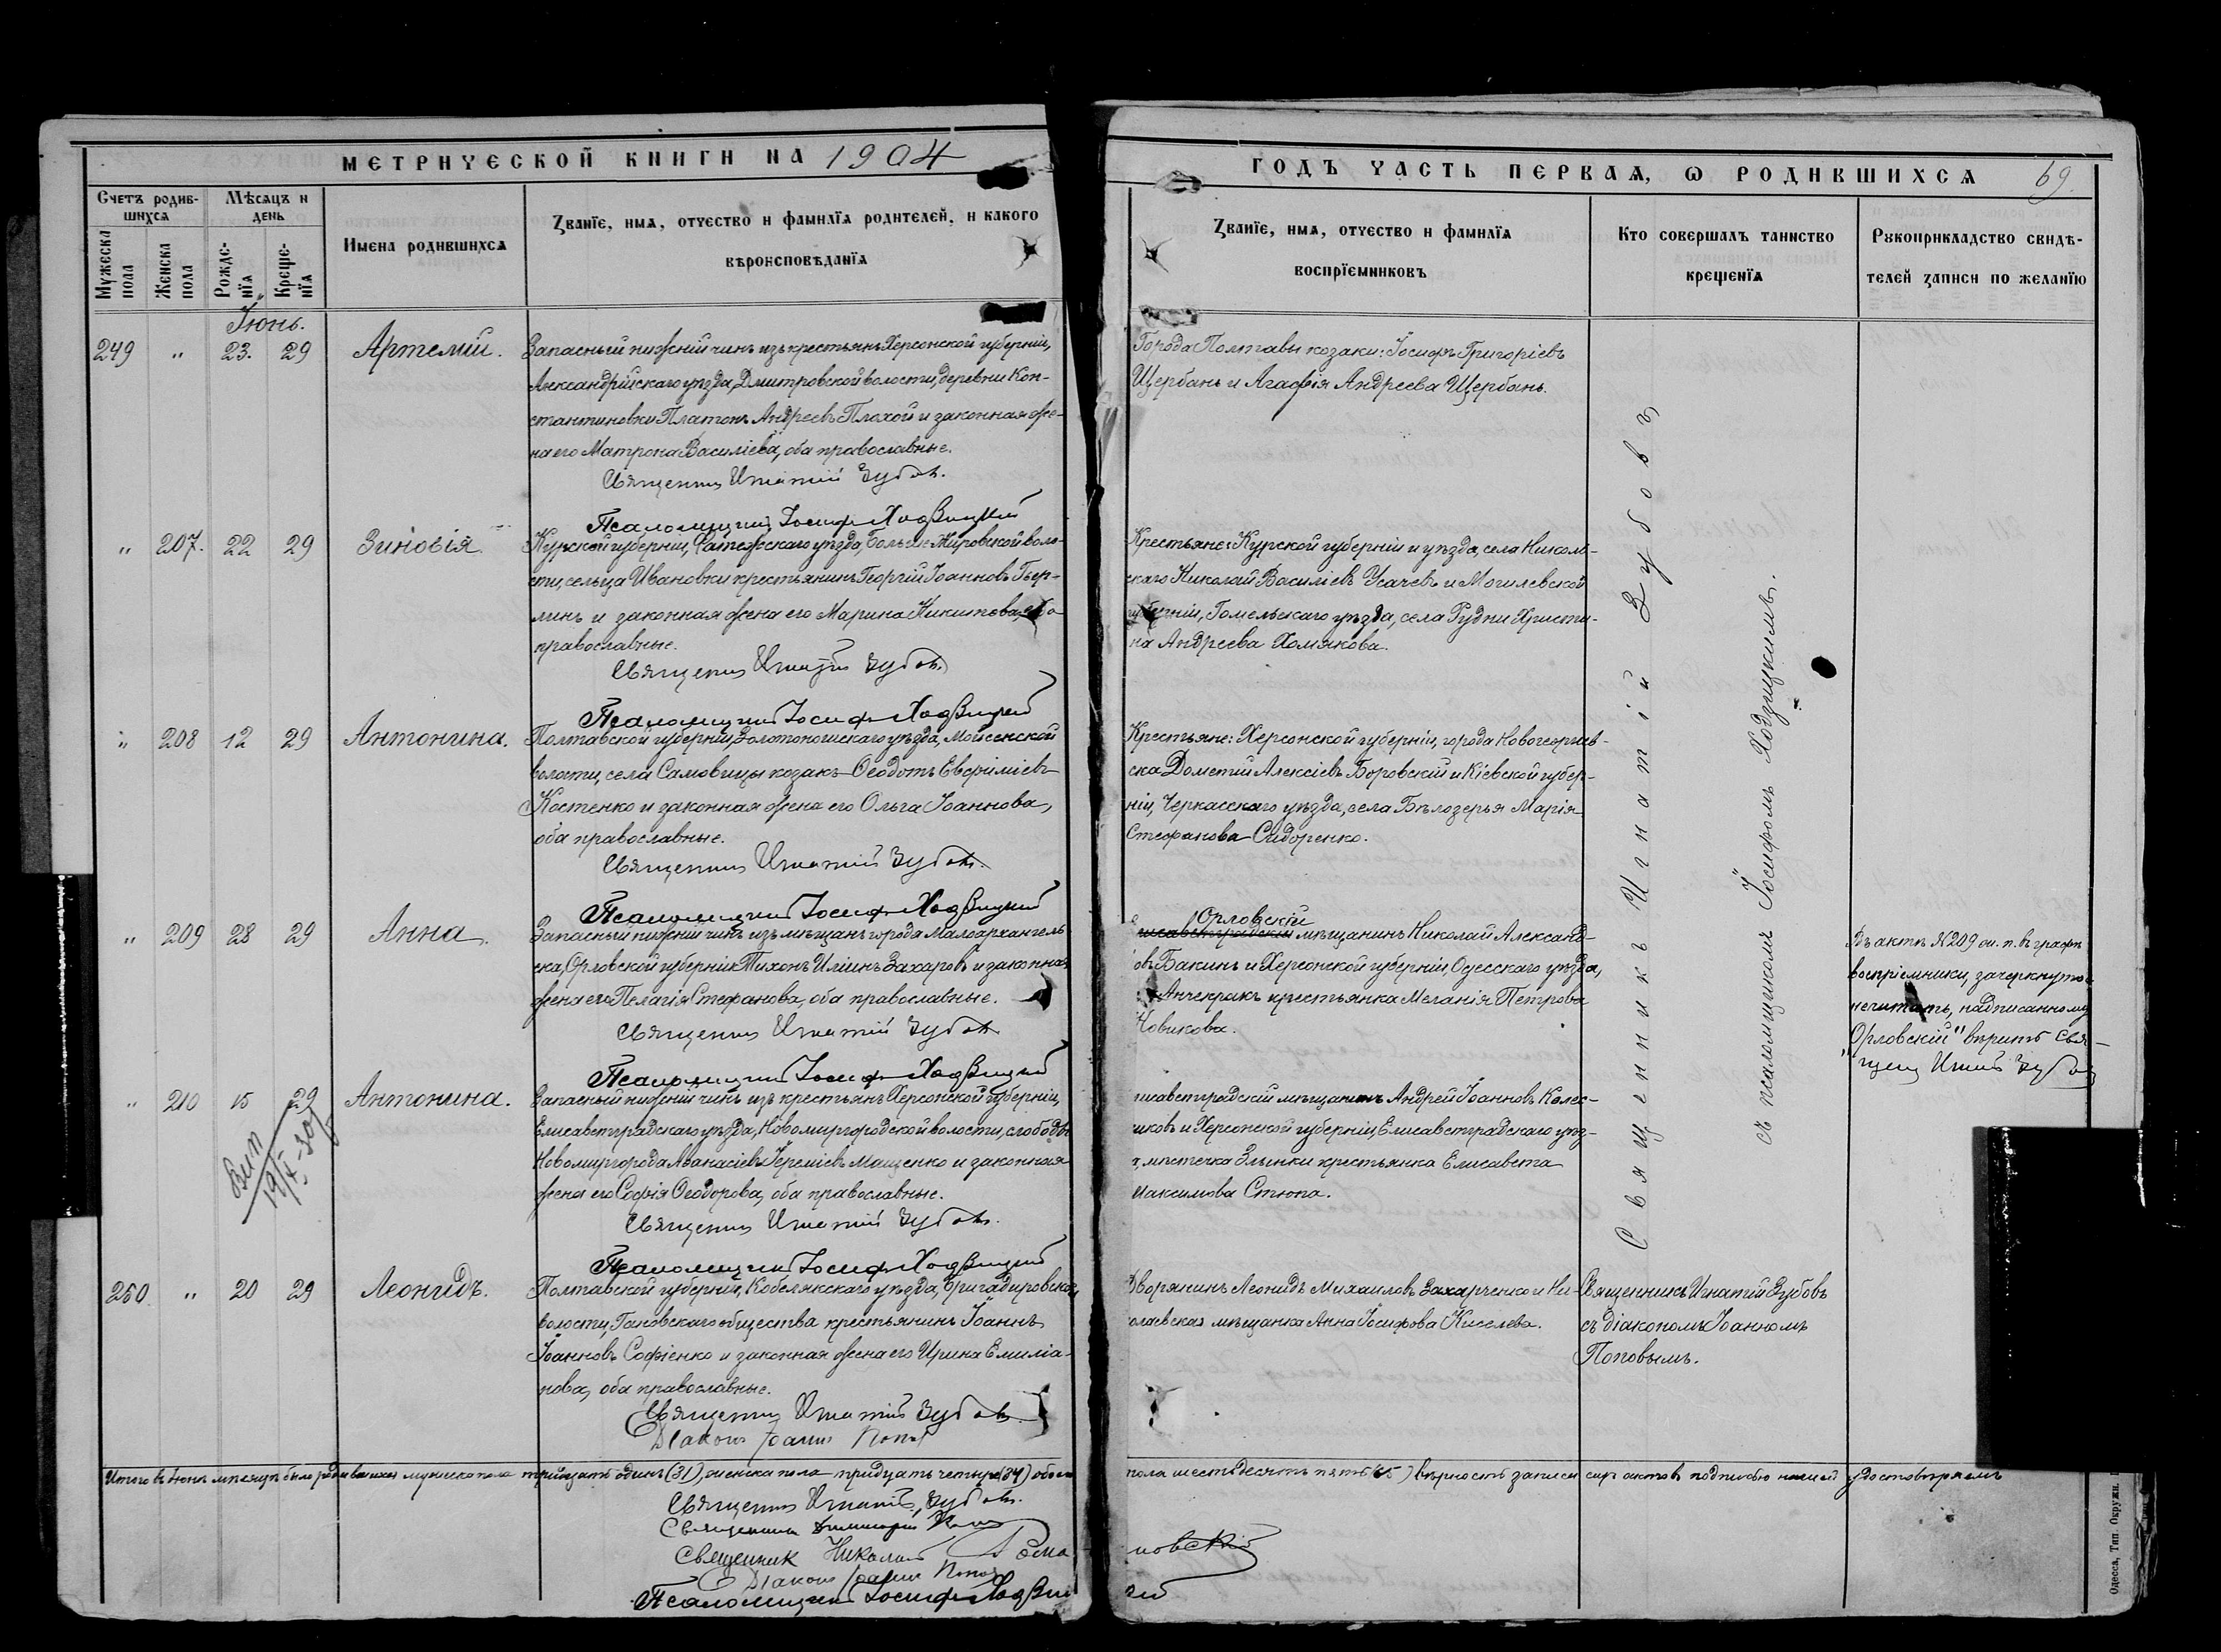 МЕТРИЧЕСКОЙ КНИГИ НА 1904
ГОДЪ ЧАСТЬ ПЕРВАЯ, Ѡ РОДИВШИХСЯ
69.
Счетъ родив-
шихся
Мѣсяцъ и
день
Мужеска
пола
Женска
пола
Рожде-
нія
Креще-
нія
Имена родившихся
Званіе, имя, отчество и фамилія родителей, и какого
вѣроисповѣданія
Званіе, имя, отчество и фамилія
воспріемниковъ
Кто совершалъ таинство
крещенія
Рукоприкладство свидѣ-
телей записи по желанію
Іюнь.
249 " 23. 29 Артемій.
Запасный нижній чинъ изъ крестьянъ Херсонской губерніи,
Александрійскаго уѣзда, Дмитровской волости, деревни Кон-
стантиновки Платонъ Андреевъ Плохой и законная же-
на его Матрона Василіева, оба православные.
Священникъ Игнатій Зубовъ.
Псаломщикъ Іосифъ Ходзицкій
Города Полтавы козаки: Іосифъ Григоріевъ
Щербань и Агафія Андреева Щербань.
" 207. 22 29 Зиновія.
Курской губерніи, Фатежскаго уѣзда, Больше-Жировской воло-
сти, сельца Ивановки крестьянинъ Георгій Іоанновъ
линъ и законная жена его Марина Никитова, оба
православные.
Священникъ Игнатій Зубовъ
Псаломщикъ Іосифъ Ходзицкій
Крестьяне: Курской губерніи и уѣзда, села Николь-
скаго Николай Василіевъ Усачевъ и Могилевской
губерніи, Гомельскаго уѣзда, села Рудни Христи-
на Андреева Хомякова.
" 208 12 29 Антонина.
Полтавской губерніи, Золотоношскаго уѣзда, Мойсенской
волости, села Самовицы козакъ Ѳеодотъ Евфиміевъ
Костенко и законная жена его Ольга Іоаннова,
оба православные.
Священникъ Игнатій Зубовъ.
Псаломщикъ Іосифъ Ходзицкій
Крестьяне: Херсонской губерніи, города Новогеоргіев-
ска Дометій Алексіевъ Боровскій и Кіевской губер-
ніи, Черкасскаго уѣзда, села Бѣлозерья Марія
Стефанова Сидоренко.
" 209 28 29 Анна.
Запасный нижній чинъ изъ мѣщанъ города Малоархангель-
ска, Орловской губерніи Тихонъ Иліинъ Захаровъ и законная
жена его Пелагія Стефанова, оба православные.
Священникъ Игнатій Зубовъ
Псаломщикъ Іосифъ Ходзицкій
Орловскій
исаветградскій мѣщанинъ Николай Александ-
овъ Бакинъ и Херсонской губерніи, Одесскаго уѣзда,
Анчекракъ крестьянка Меланія Петрова
Новикова.
Въ актѣ №209 ж. п. въ графѣ
воспріемники, зачеркнуто
нечитать, надписанному
"Орловскій" вѣрить Свя-
щен Игнатій Зубовъ
" 210 15 29 Антонина.
Вип
19/V-30
Запасный нижній чинъ изъ крестьянъ Херсонской губерніи,
Елисаветградскаго уѣзда, Новомиргородской волости, слободы
Новомиргорода Аѳанасіевъ Іереміевъ Мащенко и законная
жена его Софія Ѳеодорова, оба православные.
Священникъ Игнатій Зубовъ.
Псаломщикъ Іосифъ Ходзицкій
лисаветградскій мѣщанинъ Андрей Іоанновъ Колес-
никовъ и Херсонской губерніи, Елисаветградскаго уѣз-
а, мѣстечка Злынки крестьянка Елисавета
Максимова Стюпа.
Священникъ Игнатій Зубовъ
съ псаломщикомъ Іосифомъ Ходзицкимъ.
250 " 20 29 Леонидъ.
Полтавской губерніи, Кобелякскаго уѣзда, Бригадировской
волости, Гановскаго общества крестьянинъ Іоаннъ
Іоанновъ Софіенко и законная жена его Ирина Емиліа-
нова, оба православные.
Священникъ Игнатій Зубовъ.
Діаконъ Іоаннъ Поповъ
Дворянинъ Леонидъ Михаиловъ Захарченко и Ни-
колаевская мѣщанка Анна Іосифова Киселева.
Священникъ Игнатій Зубовъ
съ діакономъ Іоанномъ
Поповымъ.
Итого въ Іюнѣ мѣсяцѣ было родившихся мужеска пола тридцать одинъ (31), женска пола тридцать четыре (34) обоего пола шестьдесятъ пять (65) вѣрность записи сихъ актовъ подписью нашей удостовѣряемъ
Священникъ Игнатій Зубовъ.
Священникъ
Священник Николай Романовскій
Діаконъ Іоаннъ Поповъ
Псаломщикъ Іосифъ Ходзицкій
Одесса, Тип. Окружн.